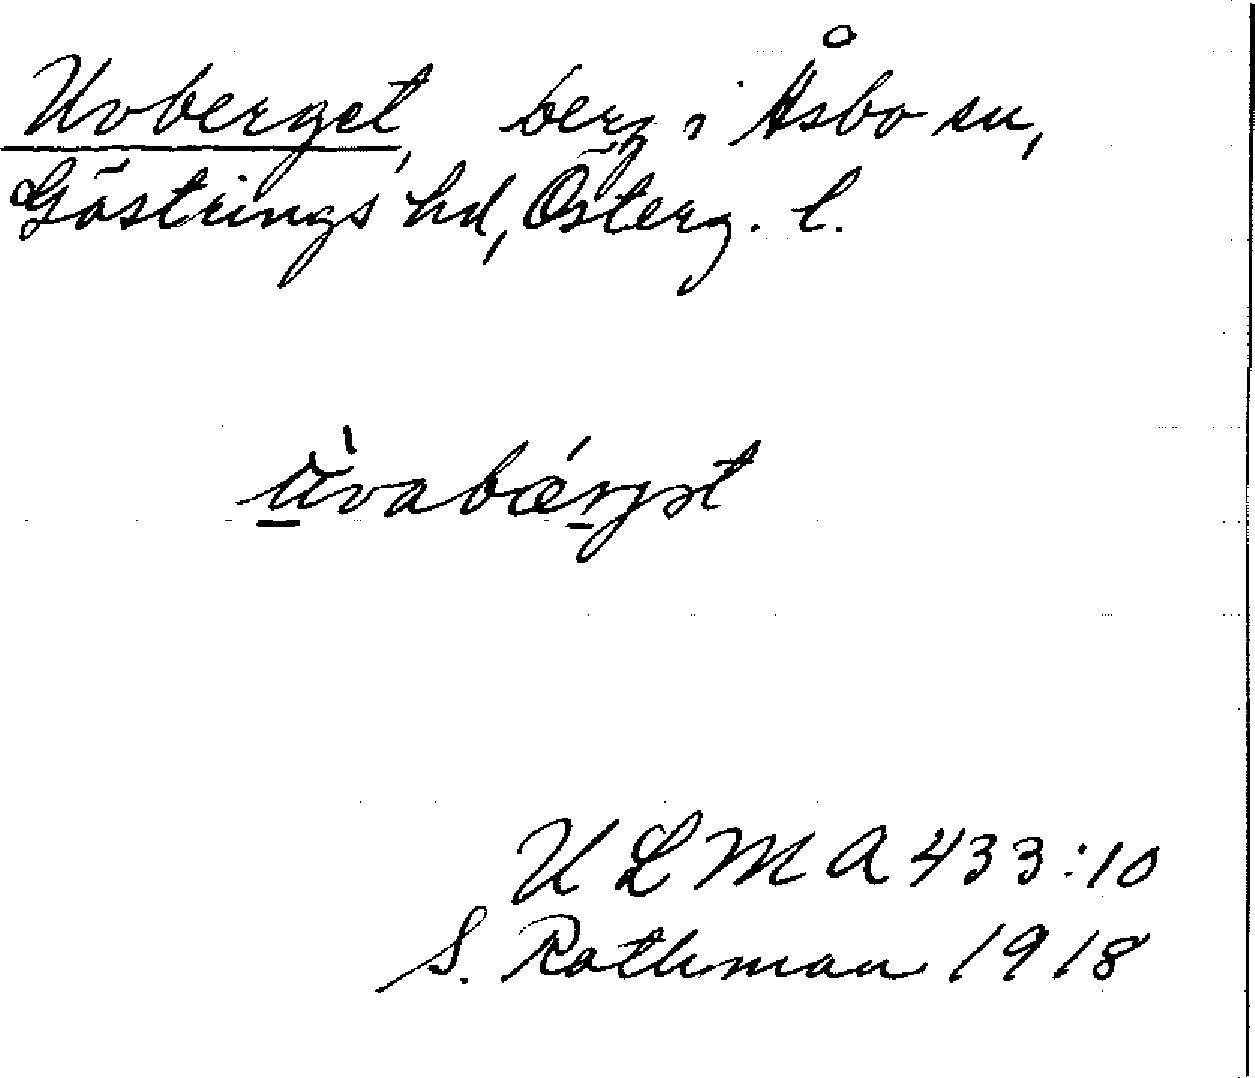 Uvberget, berg i Åsbo sn,
Göstrings hd, Österg. l.
ùvabǽrjət
ULMA 433:10
S. Rothman 1918